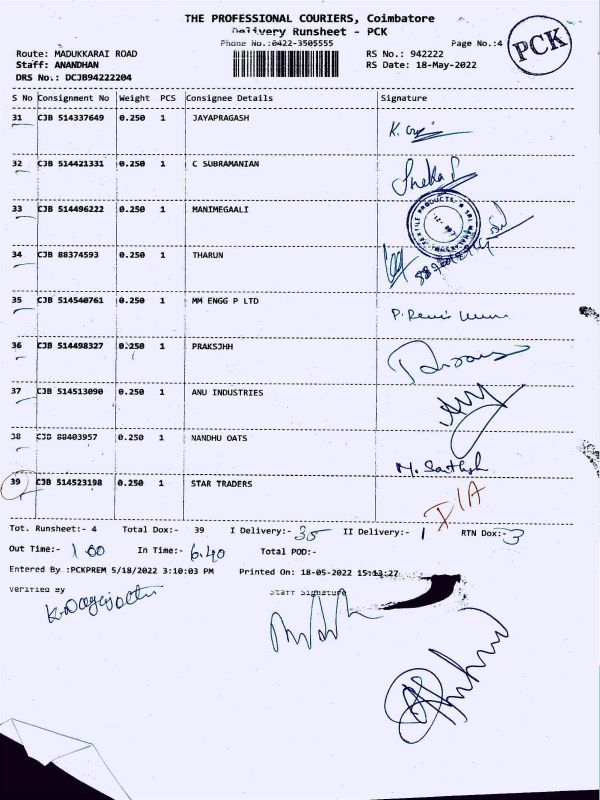 THE PROFESSIONAL COURIERS, Coimbatore
Delivery Runsheet - PCK
Phone No.:0422-3505555
Page No.:4
PCK
Route: MADUKKARAI ROAD
RS No.: 942222
Staff: ANANDHAN
RS Date: 18-May-2022
DRS No.: DCJB94222204
S No Consignment No Weight PCS Consignee Details Signature
31 CJB 514337649 0.250 1 JAYAPRAGASH
32 CJB 514421331 0.250 1 C SUBRAMANIAN Sneka
33 CJB 514496222 0.250 1 MANIMEGAALI
34 CJB 88374593 0.250 1 THARUN
35 CJB 514540761 0.250 1 MM ENGG P LTD
36 CJB 514498327 0.250 1 PRAKSJHH
37 CJB 514513090 0.250 1 ANU INDUSTRIES
38 CJB 88403957 0.250 1 NANDHU OATS M. Sathish
39 CJB 514523198 0.250 1 STAR TRADERS I/A
Tot. Runsheet:- 4 Total Dox:- 39 I Delivery:- 35 II Delivery:- 1 RTN Dox:- 3
Out Time:- 1.00 In Time:- 6.40 Total POD:-
Entered By :PCKPREM 5/18/2022 3:10:03 PM Printed On: 18-05-2022 15:13:27
Verified By
Staff Signature